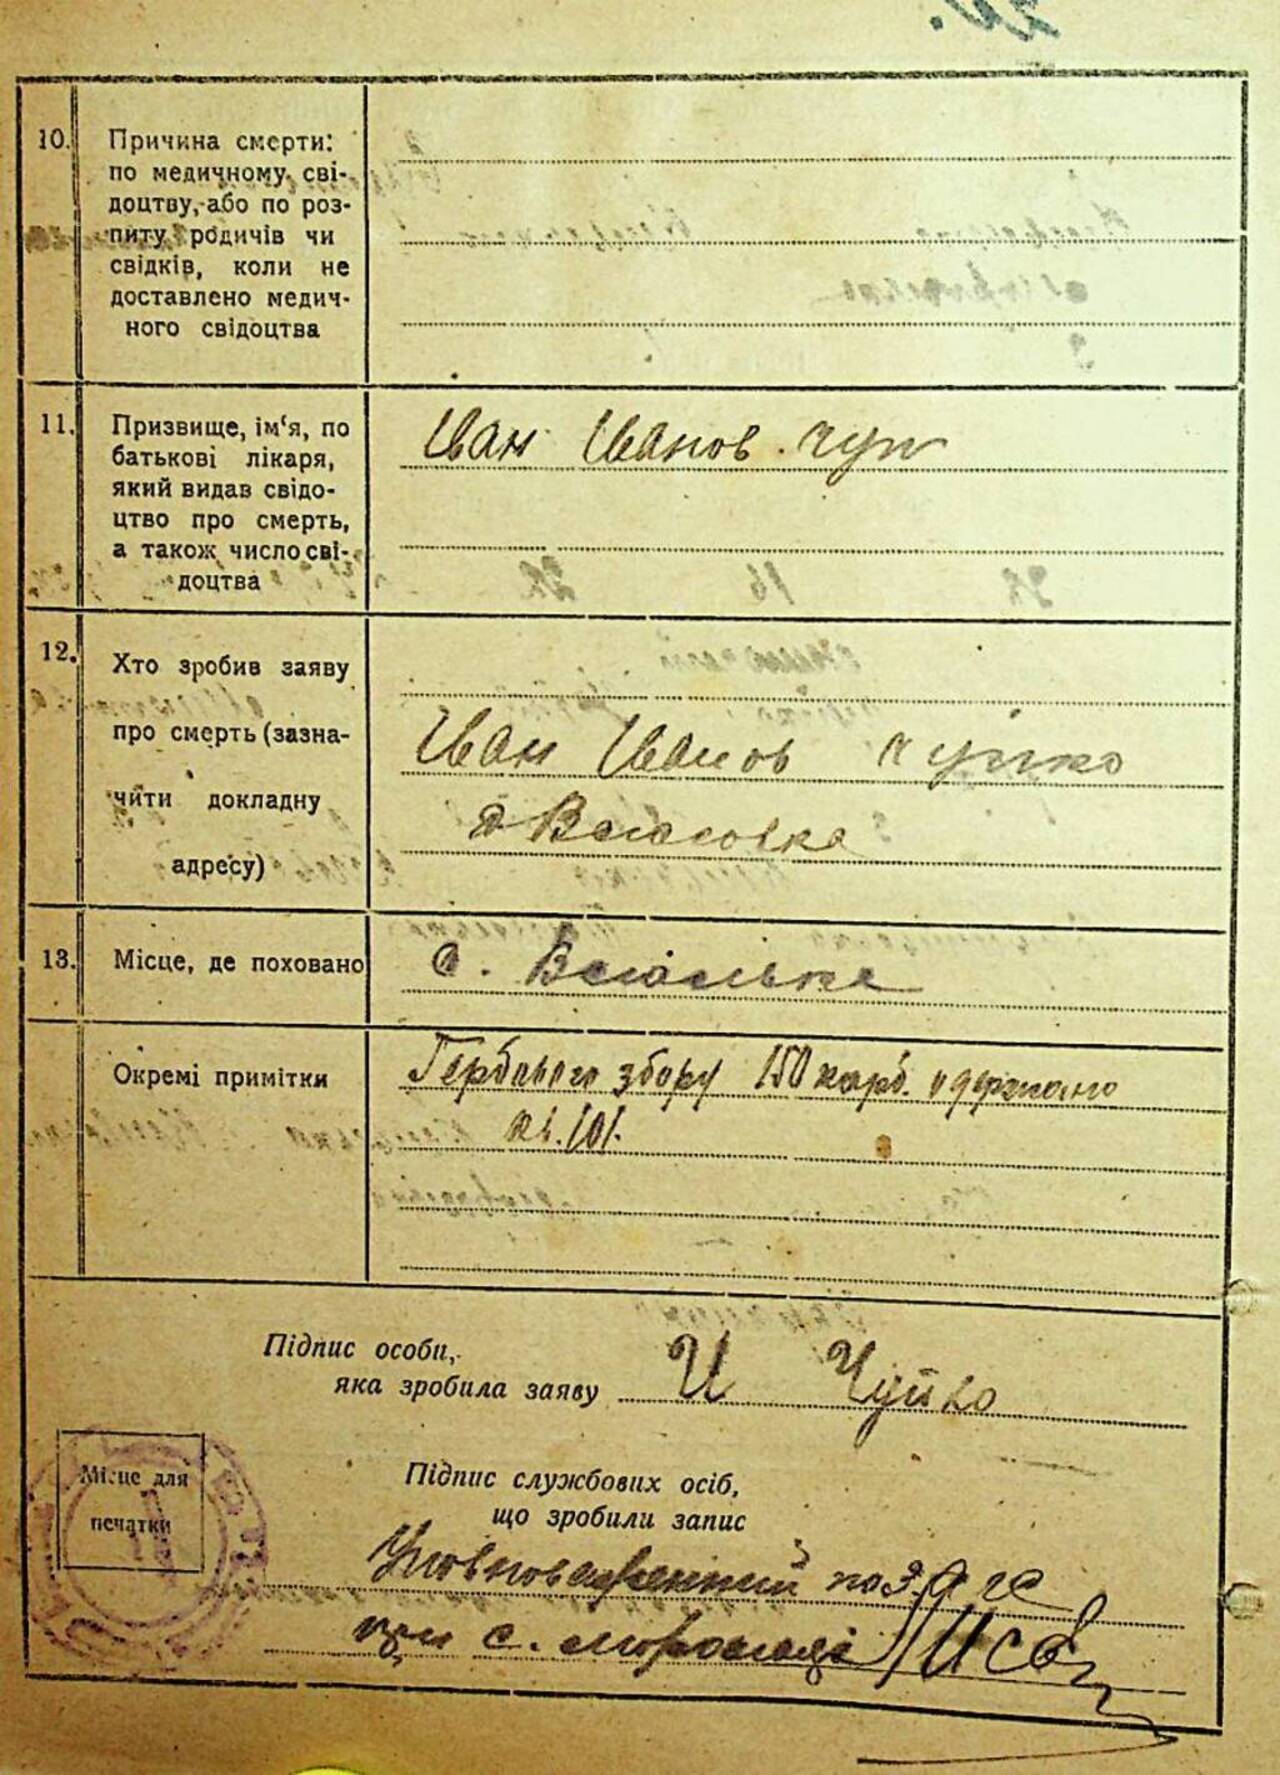 10. Причина смерти:
по медичному сві-
доцтву, або по роз-
питу родичів чи
свідків, коли не
доставлено медич-
ного свідоцтва
11. Призвище, ім‘я, по
батькові лікаря,
який видав свідо-
цтво про смерть,
а також число сві-
доцтва
Іван Іванов. Чуп
12. Хто зробив заяву
про смерть (зазна-
чити докладну
адресу)
Іван Іванов Чуйко
13. Місце, де поховано
с.
Окремі примітки
Гербового збору 150 карб. одержано
кв. 101.
Підпис особи,
яка зробила заяву И Чуйко
Місце для
печатки
Підпис службових осіб,
що зробили запис
Уповноважений по
при с.